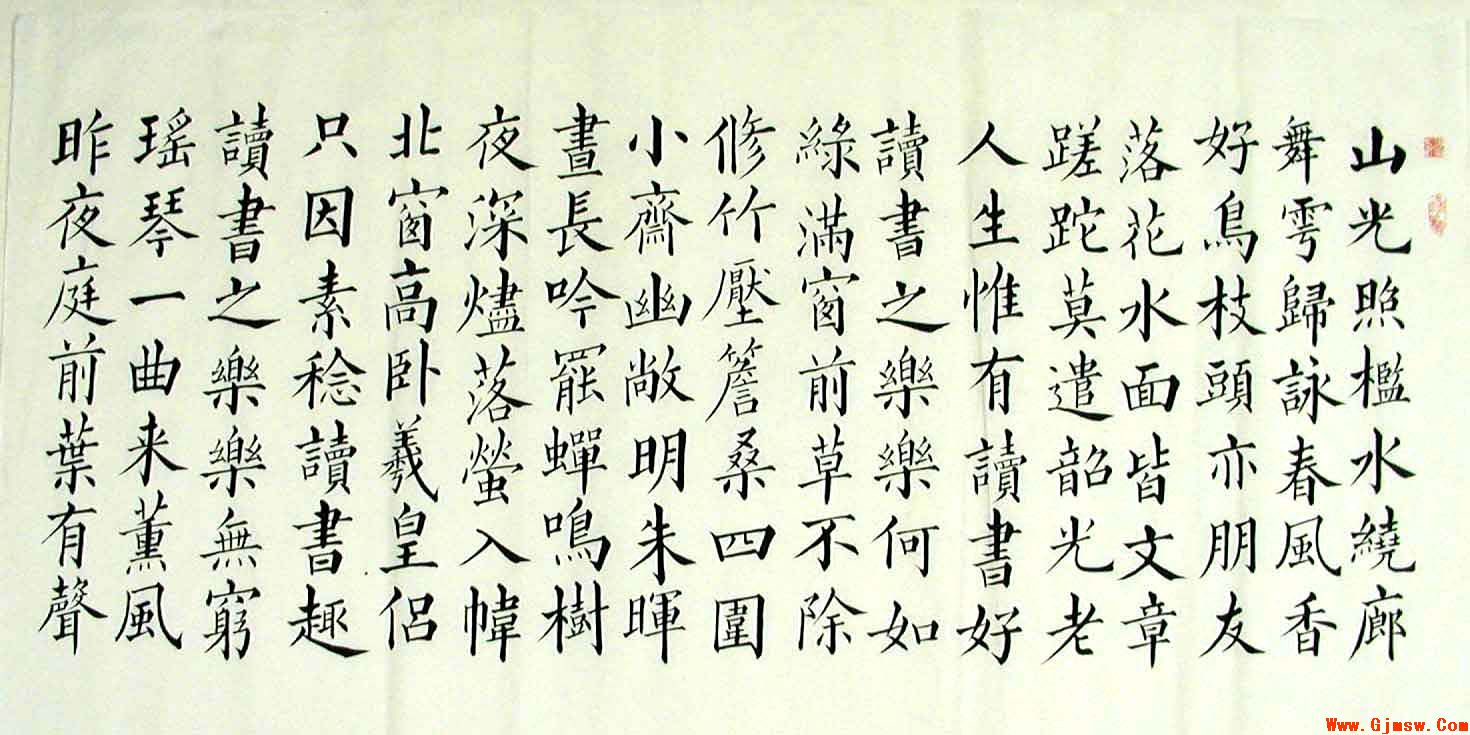 山光照檻水繞廊
舞雩歸詠春風香
好鳥枝頭亦朋友
落花水面皆文章
蹉跎莫遣韶光老
人生惟有讀書好
讀書之樂樂何如
綠滿窗前草不除
修竹壓簷桑四圍
小齋幽敞明朱暉
晝長吟罷蟬鳴樹
夜深燼落螢入幃
北窗高卧羲皇侶
只因素稔讀書趣
讀書之樂樂無窮
瑤琴一曲来薰風
昨夜庭前葉有聲
Www.Gjmsw.Com